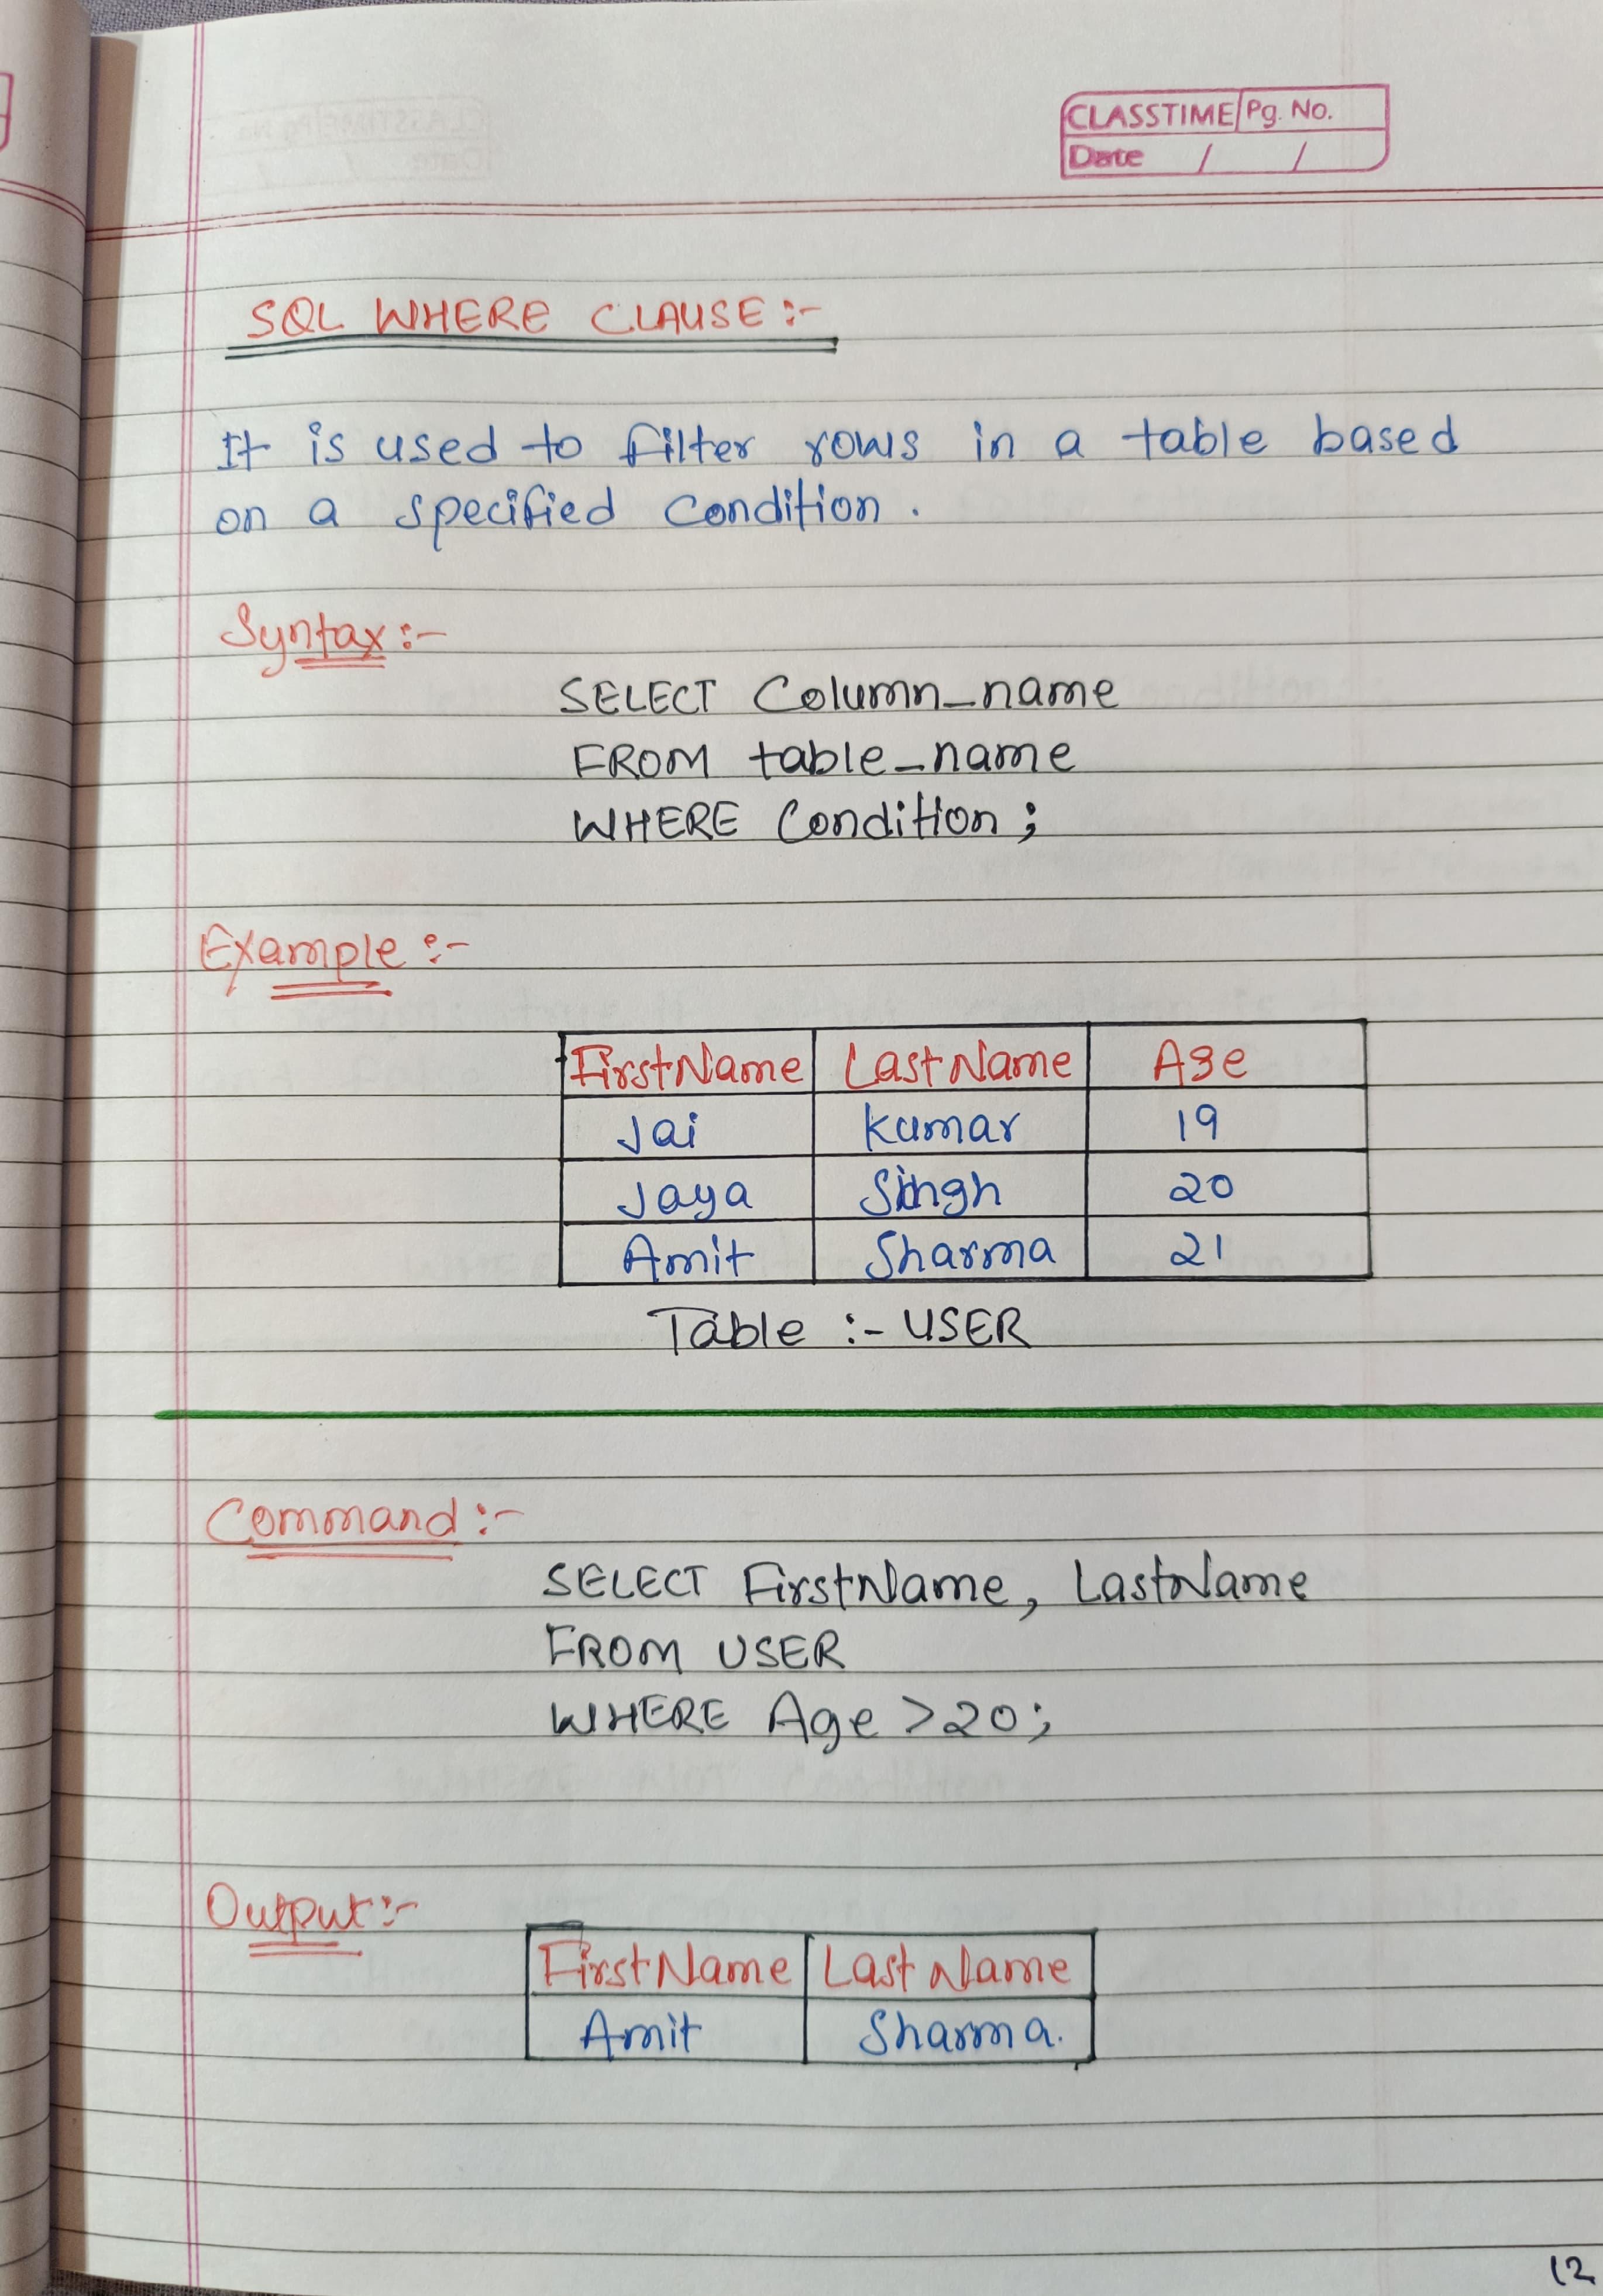 CLASSTIME Pg. No.
Date / /
SQL WHERE CLAUSE :-
It is used to filter rows in a table based
on a specified condition.
Syntax :-
SELECT Column_name
FROM table_name
WHERE Condition ;
Example :-
FirstName LastName Age
Jai Kumar 19
Jaya Singh 20
Amit Sharma 21
Table :- USER
Command :-
SELECT FirstName, LastName
FROM USER
WHERE Age >20;
Output :-
FirstName LastName
Amit Sharma.
12